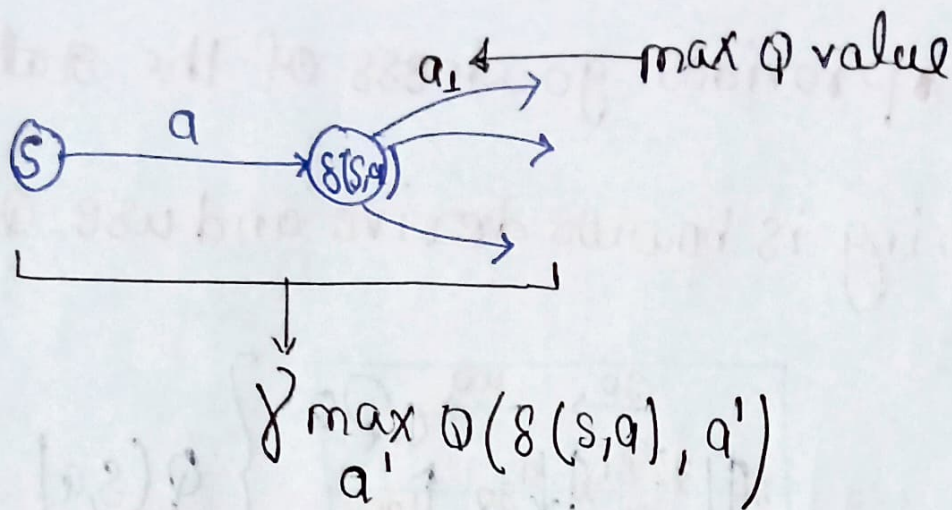 a₁ max Q value
S a δ(s,a)
γ max Q(δ(s,a), a')
a'